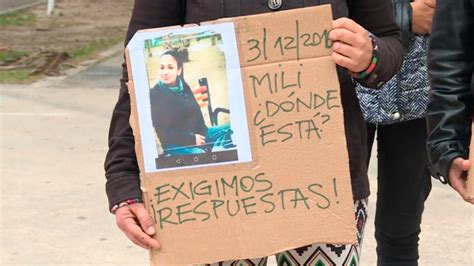 3/12/201
MILI
¿DÓNDE
ESTÁ?
¡EXIGIMOS
RESPUESTAS!